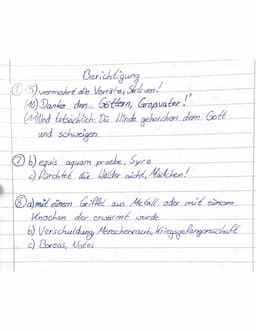 Berichtigung
① (9) vermehrt die Vorräte, Sklaven!
(10) Danke den... Göttern, Grossvater!"
(11) Und tatsächlich: Die Winde gehorchen dem Gott
und schweigen.
② b) equis aquam praebe, Syre
c) Fürchtet die Wälder nicht, Mädchen!
⑧ a) mit einem Griffel aus Metall oder mit einem
Knochen der erwärmt wurde
b) Verschuldung, Menschenraub, Kriegsgefangenschaft
c) Boreas, Notos